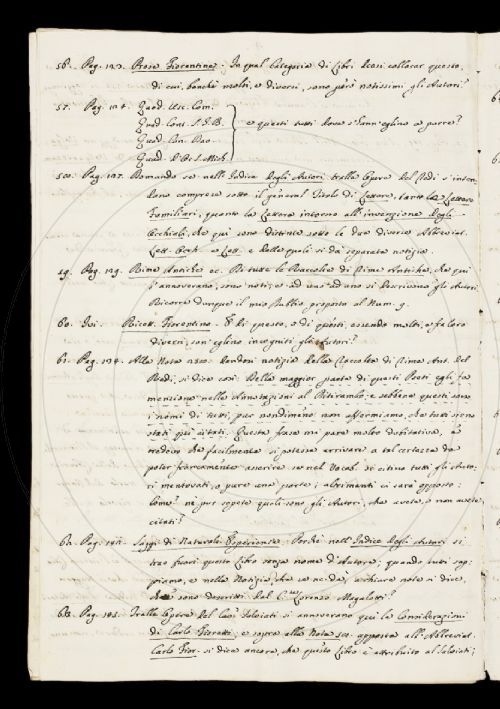 56. Pag. 123. Prose Fiorentine. In qual Categoria di Libri deasi collocar questo,
di cui, benchè molti, e diversi, sono però notissimi gli Autori?
57. Pag. 124. Quad. Usc. Com.
Quad. Cons. S.
Quad.
Quad.
e questi tutti dove s'hann'eglino a porre?
Pag. 127. Domando se nell'Indice degli Autori, tralle Opere del Redi s'inten-
dano comprese sotto il general Titolo di Lettere, tanto le Lettere
Familiari, quanto la Lettera intorno all'invenzione degli
Occhiali, che qui sono distinte sotto le due diverse Abbreviat.
Lett. Occh. e Lett. e delle quali si dà separata notizia.
59. Pag. 129. Rime Antiche ec. Di tutte le Raccolte di Rime Antiche, che qui
s'annoverano, sono notizie ad uno ad uno si descrivono gli Autori.
Ricorre dunque il mio dubbio proposto al Num. 9.
60. Ivi. Ricett. Fiorentino. E di questo, o di questi, essendo molti, e fra loro
diversi, son'eglino incogniti gli Autori?
61. Pag. 134. Alla Nota dando notizia della Raccolta di Rime Ant. del
Redi, si dice così: Della maggior parte di questi Poeti egli fa
menzione nelle Annotazioni al Ditirambo, e sebbene questi sono
i nomi di tutti, pur nondimeno non affermiamo, che tutti sieno
stati qui citati. Questa frase mi pare molto dubitativa, e
credevo che facilmente si potesse arrivare a tal certezza da
poter francamente asserire se nel Vocab. si citino tutti gli Auto-
ri mentovati, o pure una parte; altrimenti ci sarà opposto:
Come? nè pur sapete quali sono gli Autori, che avete, o non avete
citati?
62. Pag. Saggi di Naturali Esperienze. Perchè nell'Indice degli Autori si
trae fuori questo Libro senza nome d'Autore; quando tutti sap-
piamo, e nella Notizia, che se ne dà, a chiare note si dice,
che sono descritti dal C. Lorenzo Magalotti?
63. Pag. Tralle Opere del Cav. Salviati si annoverano qui le Considerazioni
di Carlo Fioretti; e sopra alla Nota apposta all'Abbreviat.
Carlo Fior. si dice ancora, che questo Libro è attribuito al Salviati;